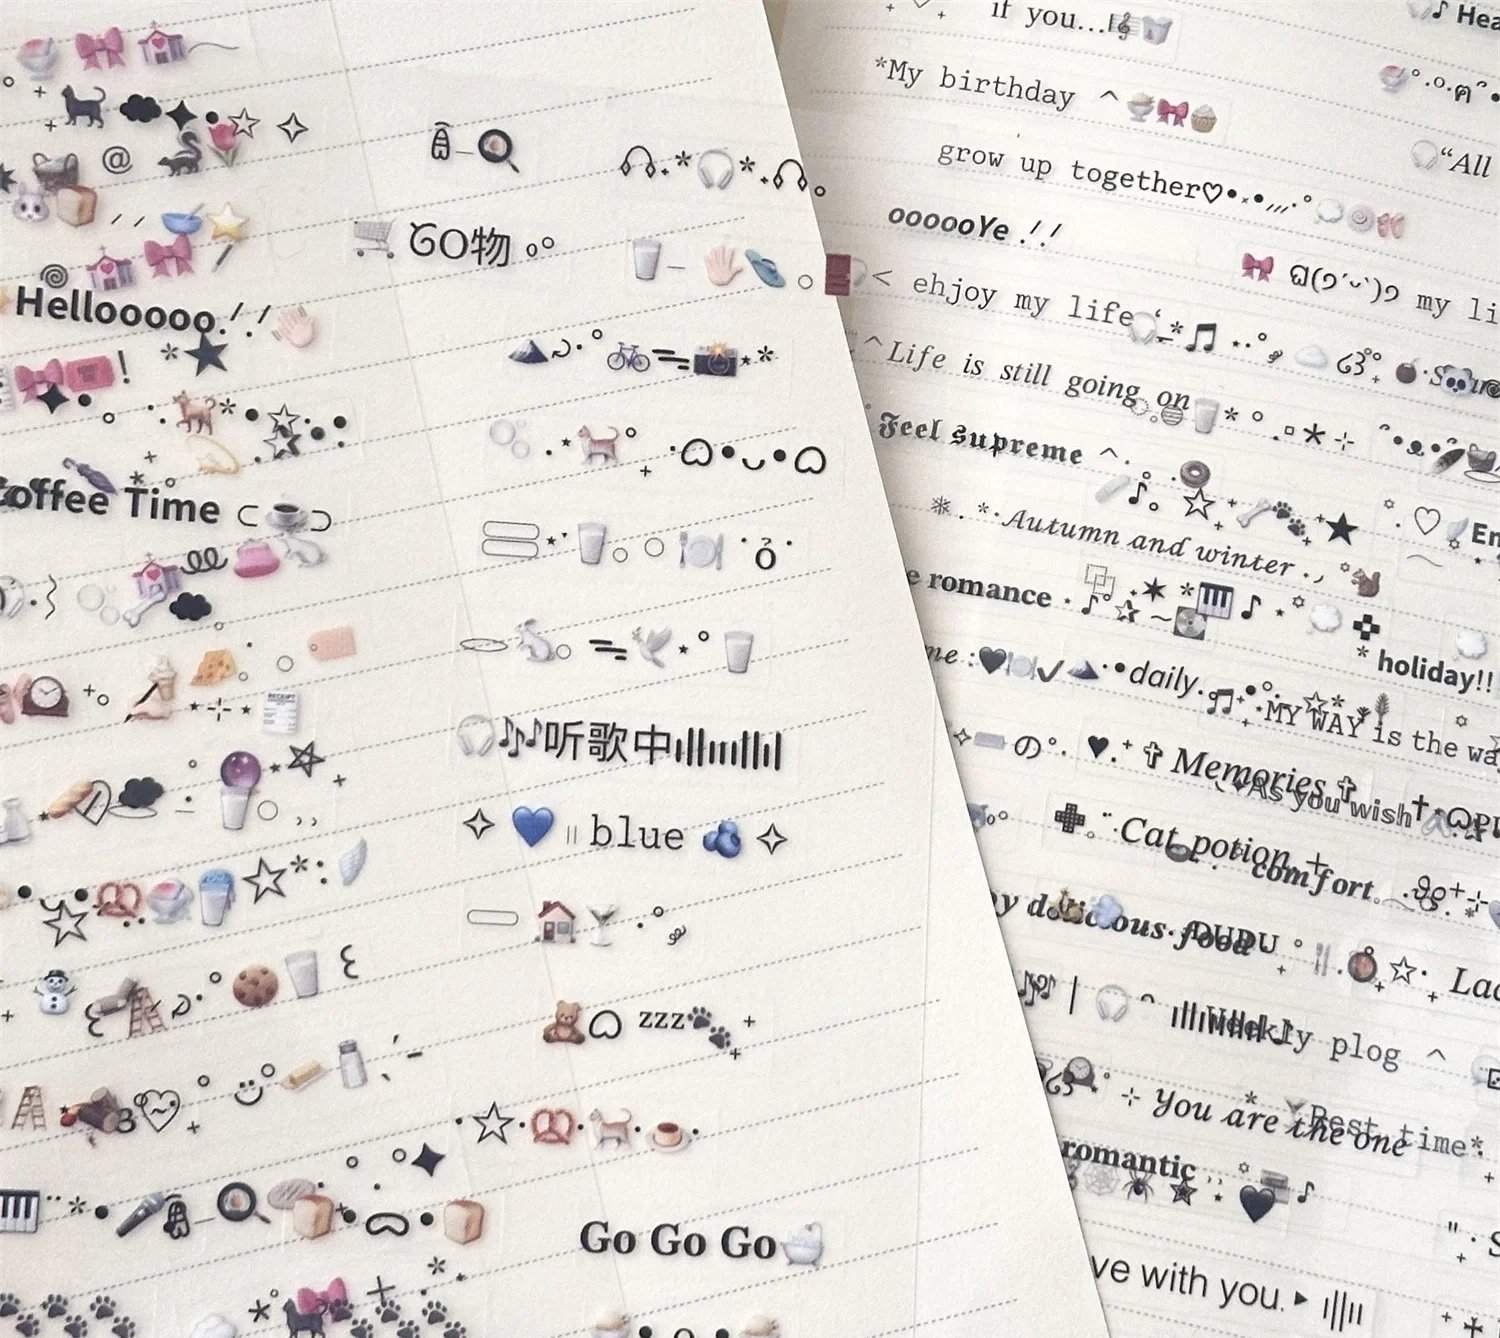 @
GO物
Hellooooo.!!
RECEIPT
offee Time
听歌中
blue
zzz
Go Go Go
if you...
*My birthday ^
grow up together♡
oooooYe .!.!
< ehjoy my life
^Life is still going on
Feel supreme ^.
*.Autumn and winter .,
e romance
* holiday!!
me :
daily.
MY WAY is the wa
の
Memories
As you wish
Cat potion
comfort.
y delicious food
DUDU
Weekly plog ^
You are the one
Best time*
romantic
ve with you.
Hea
"All
my li
En
Lac